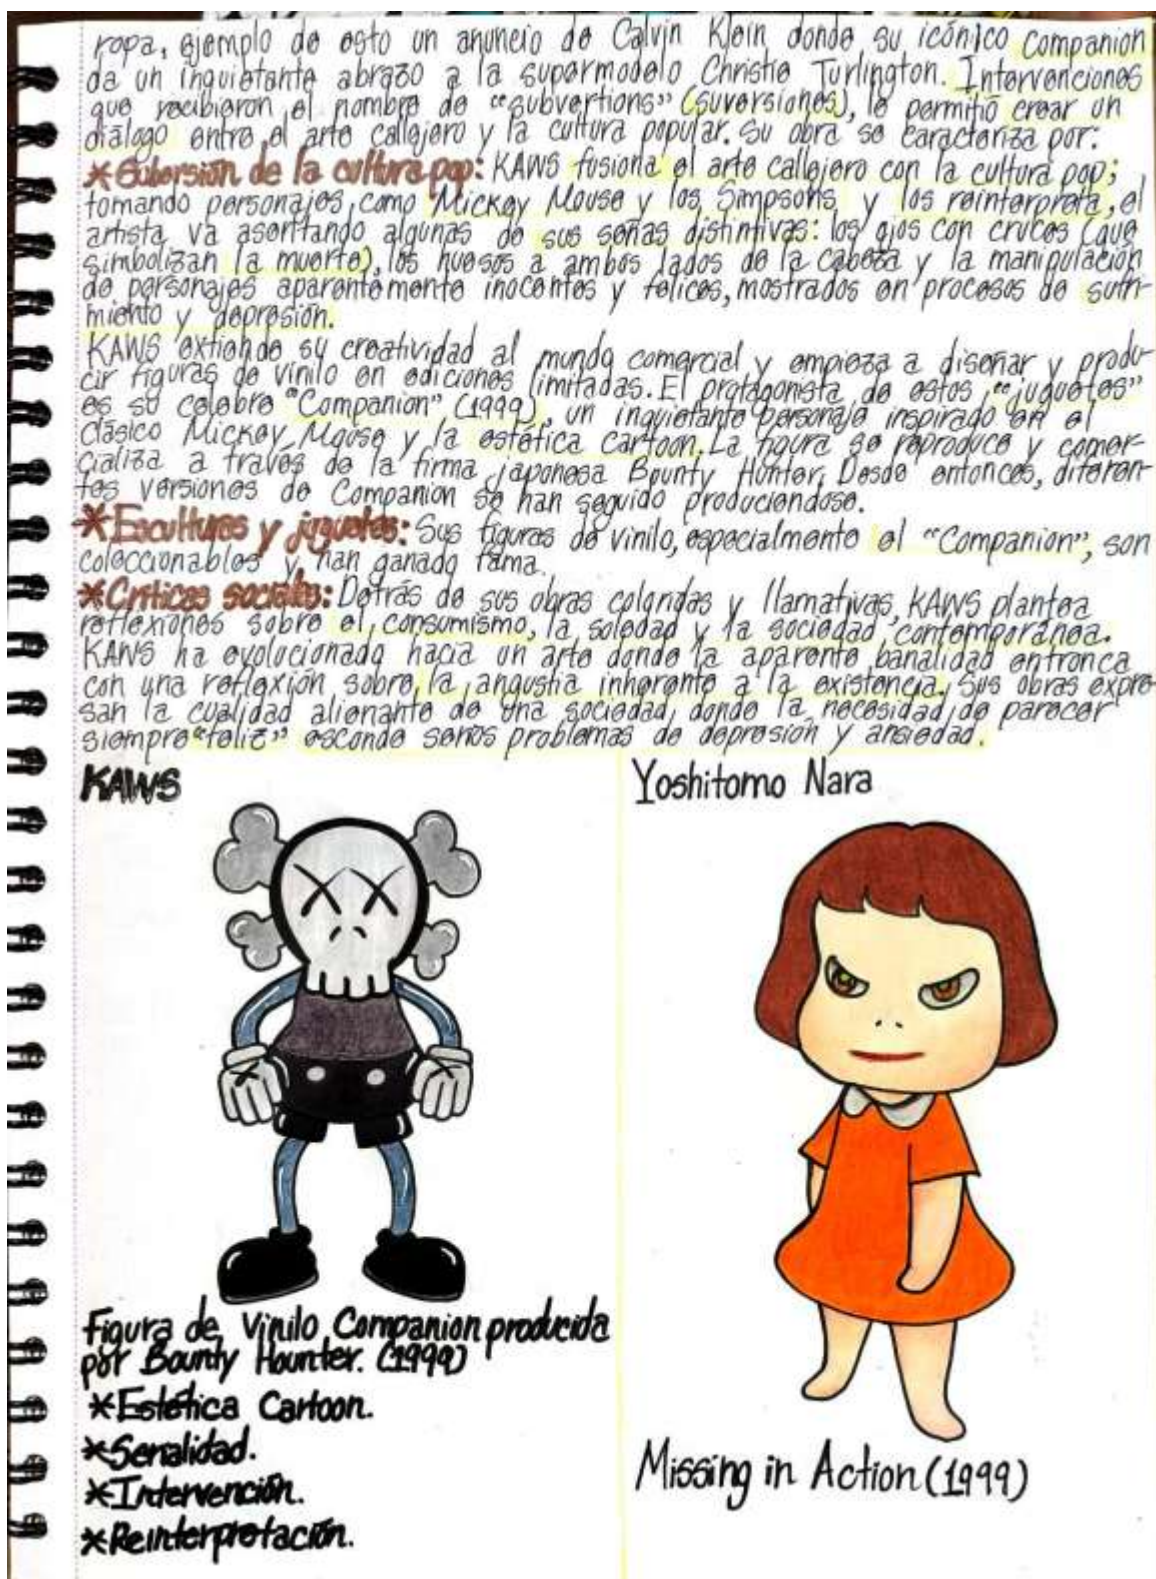 ropa, ejemplo de esto un anuncio de Calvin Klein donde su icónico companion
da un inquietante abrazo a la supermodelo Christie Turlington. Intervenciones
que recibieron el nombre de "subvertions" (suversiones), le permitió crear un
diálogo entre el arte callejero y la cultura popular. Su obra se caracteriza por:
*Subersión de la cultura pop: KAWS fusiona el arte callejero con la cultura pop;
tomando personajes como Mickey Mouse y los Simpsons y los reinterpreta, el
artista va asentando algunas de sus señas distintivas: los ojos con cruces (que
simbolizan la muerte), los huesos a ambos lados de la cabeza y la manipulación
de personajes aparentemente inocentes y felices, mostrados en procesos de sufri-
miento y depresión.
KAWS extiende su creatividad al mundo comercial y empieza a diseñar y produ-
cir figuras de vinilo en ediciones limitadas. El protagonista de estos "juguetes"
es su célebre "Companion" (1999), un inquietante personaje inspirado en el
clásico Mickey Mouse y la estética cartoon. La figura se reproduce y comer-
cializa a través de la firma japonesa Bounty Hunter. Desde entonces, diferen-
tes versiones de Companion se han seguido produciendose.
*Esculturas y juguetes: Sus figuras de vinilo, especialmente el "Companion", son
coleccionables y han ganado fama.
*Críticas sociales: Detrás de sus obras coloridas y llamativas, KAWS plantea
reflexiones sobre el consumismo, la soledad y la sociedad contemporánea.
KAWS ha evolucionado hacia un arte donde la aparente banalidad entronca
con una reflexión sobre la angustia inherente a la existencia. Sus obras expre-
san la cualidad alienante de una sociedad donde la necesidad de parecer
siempre "feliz" esconde serios problemas de depresión y ansiedad.
KAWS
Figura de Vinilo Companion producida
por Bounty Hounter. (1999)
*Estética Cartoon.
*Serialidad.
*Intervención.
*Reinterpretación.
Yoshitomo Nara
Missing in Action (1999)